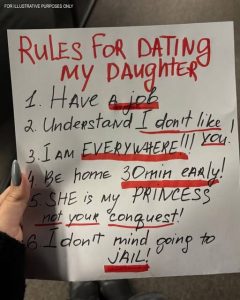 FOR ILLUSTRATIVE PURPOSES ONLY
RULES FOR DATING
MY DAUGHTER
1. HAVE a job
2. Understand I don't like
you!
3. I AM EVERYWHERE!!!
4. Be home 30min early!
5. SHE is my PRINCESS
not your conquest!
6 I don't mind going to
JAIL!